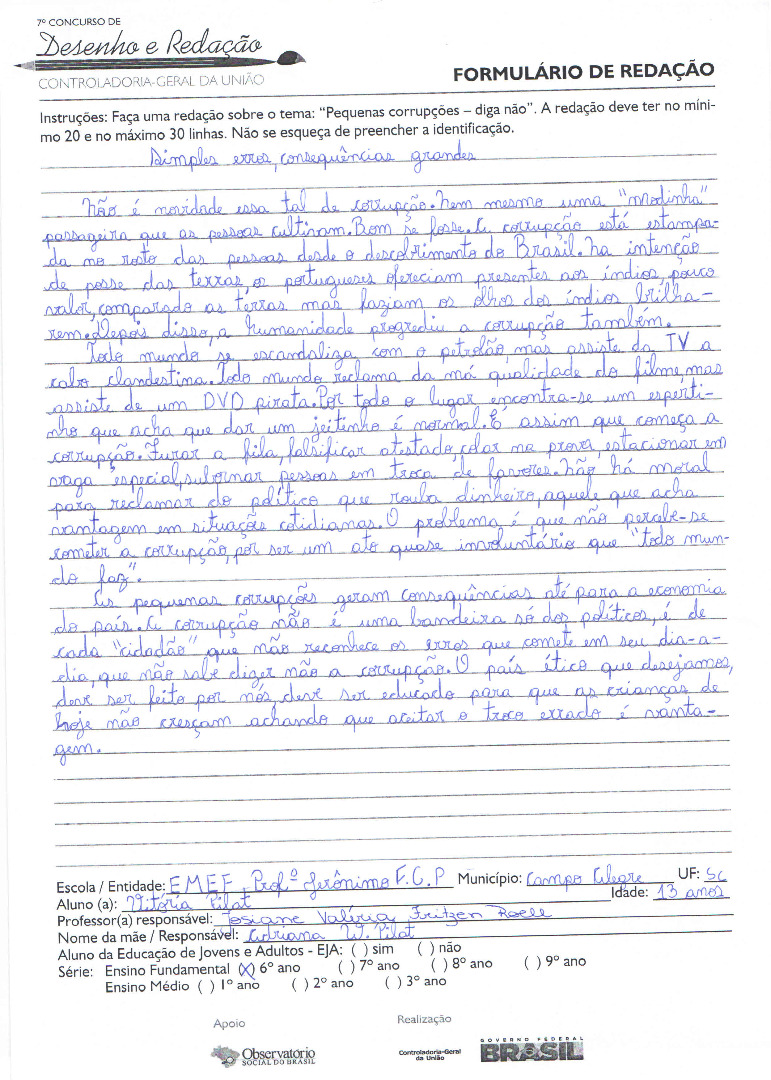 7º CONCURSO DE
Desenho e Redação
CONTROLADORIA-GERAL DA UNIÃO
FORMULÁRIO DE REDAÇÃO
Instruções: Faça uma redação sobre o tema: “Pequenas corrupções – diga não”. A redação deve ter no míni-
mo 20 e no máximo 30 linhas. Não se esqueça de preencher a identificação.
Simples erros, consequências grandes
Não é novidade essa tal de corrupção. Nem mesmo uma "Modinha"
passageira que as pessoas cultivam. Bom se fosse. A corrupção está estampa-
da no rosto das pessoas desde o descobrimento do Brasil. Na intenção
de posse das terras, os portugueses ofereciam presentes aos índios, pouco
valor, comparado as terras mas faziam os olhos dos índios brilha-
rem. Depois disso, a humanidade progrediu a corrupção também.
Todo mundo se escandaliza com o petrolão, mas assiste da TV a
cabo clandestina. Todo mundo reclama da má qualidade do filme, mas
assiste de um DVD pirata. Por todo o lugar encontra-se um esperti-
nho que acha que dar um jeitinho é normal. É assim que começa a
corrupção. Furar a fila, falsificar atestado, colar na prova, estacionar em
vaga especial, subornar pessoas em troca de favores. Não há moral
para reclamar do político que rouba dinheiro, aquele que acha
vantagem em situações cotidianas. O problema é que não percebe-se
cometer a corrupção, por ser um ato quase involuntário que "todo mun-
do faz".
As pequenas corrupções geram consequências até para a economia
do país. A corrupção não é uma bandeira só dos políticos, é de
cada "cidadão" que não reconhece os erros que comete em seu dia-a-
dia, que não sabe dizer não a corrupção. O país ético que desejamos,
deve ser feito por nós, deve ser educado para que as crianças de
hoje não cresçam achando que aceitar o troco errado é vanta-
gem.
Escola / Entidade: EMEF Profº Jerônimo F.C.P Município: Campo Alegre UF: SC
Aluno (a): Vitória Pilat Idade: 13 anos
Professor(a) responsável: Josiane Valéria Fritzen Roell
Nome da mãe / Responsável: Adriana W. Pilat
Aluno da Educação de Jovens e Adultos - EJA: ( ) sim ( ) não
Série: Ensino Fundamental (X) 6º ano ( ) 7º ano ( ) 8º ano ( ) 9º ano
Ensino Médio ( ) 1º ano ( ) 2º ano ( ) 3º ano
Apoio Realização
Observatório
SOCIAL DO BRASIL
Controladoria-Geral
da União
GOVERNO FEDERAL
BRASIL